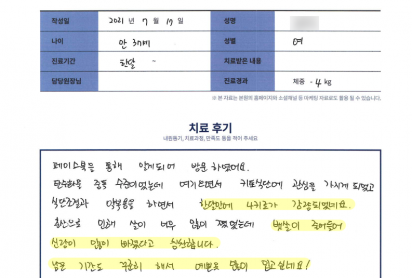 작성일 2021 년 7 월 17 일 성명
나이 만 37세 성별 여
진료기간 한달 - 치료받은 내용
담당원장님 진료경과 체중 - 4 kg
※ 본 자료는 본원의 홈페이지와 소셜채널 등 마케팅 자료로도 활용 될 수 있습니다.
치료 후기
내원동기, 치료과정, 만족도 등을 적어 주세요
페이스북을 통해 알게되어 방문 하였어요.
탄수화물 중독 수준이었는데 여기 다니면서 키토식단에 관심을 가지게 되었고
식단조절과 약복용을 하면서 한달만에 4키로가 감량되었네요.
출산으로 인해 살이 너무 많이 쪘었는데 뱃살이 줄어들어
신랑이 많이 바꼈다고 칭찬합니다.
남은 기간도 꾸준히 해서 예쁜옷 많이 입고싶네요!